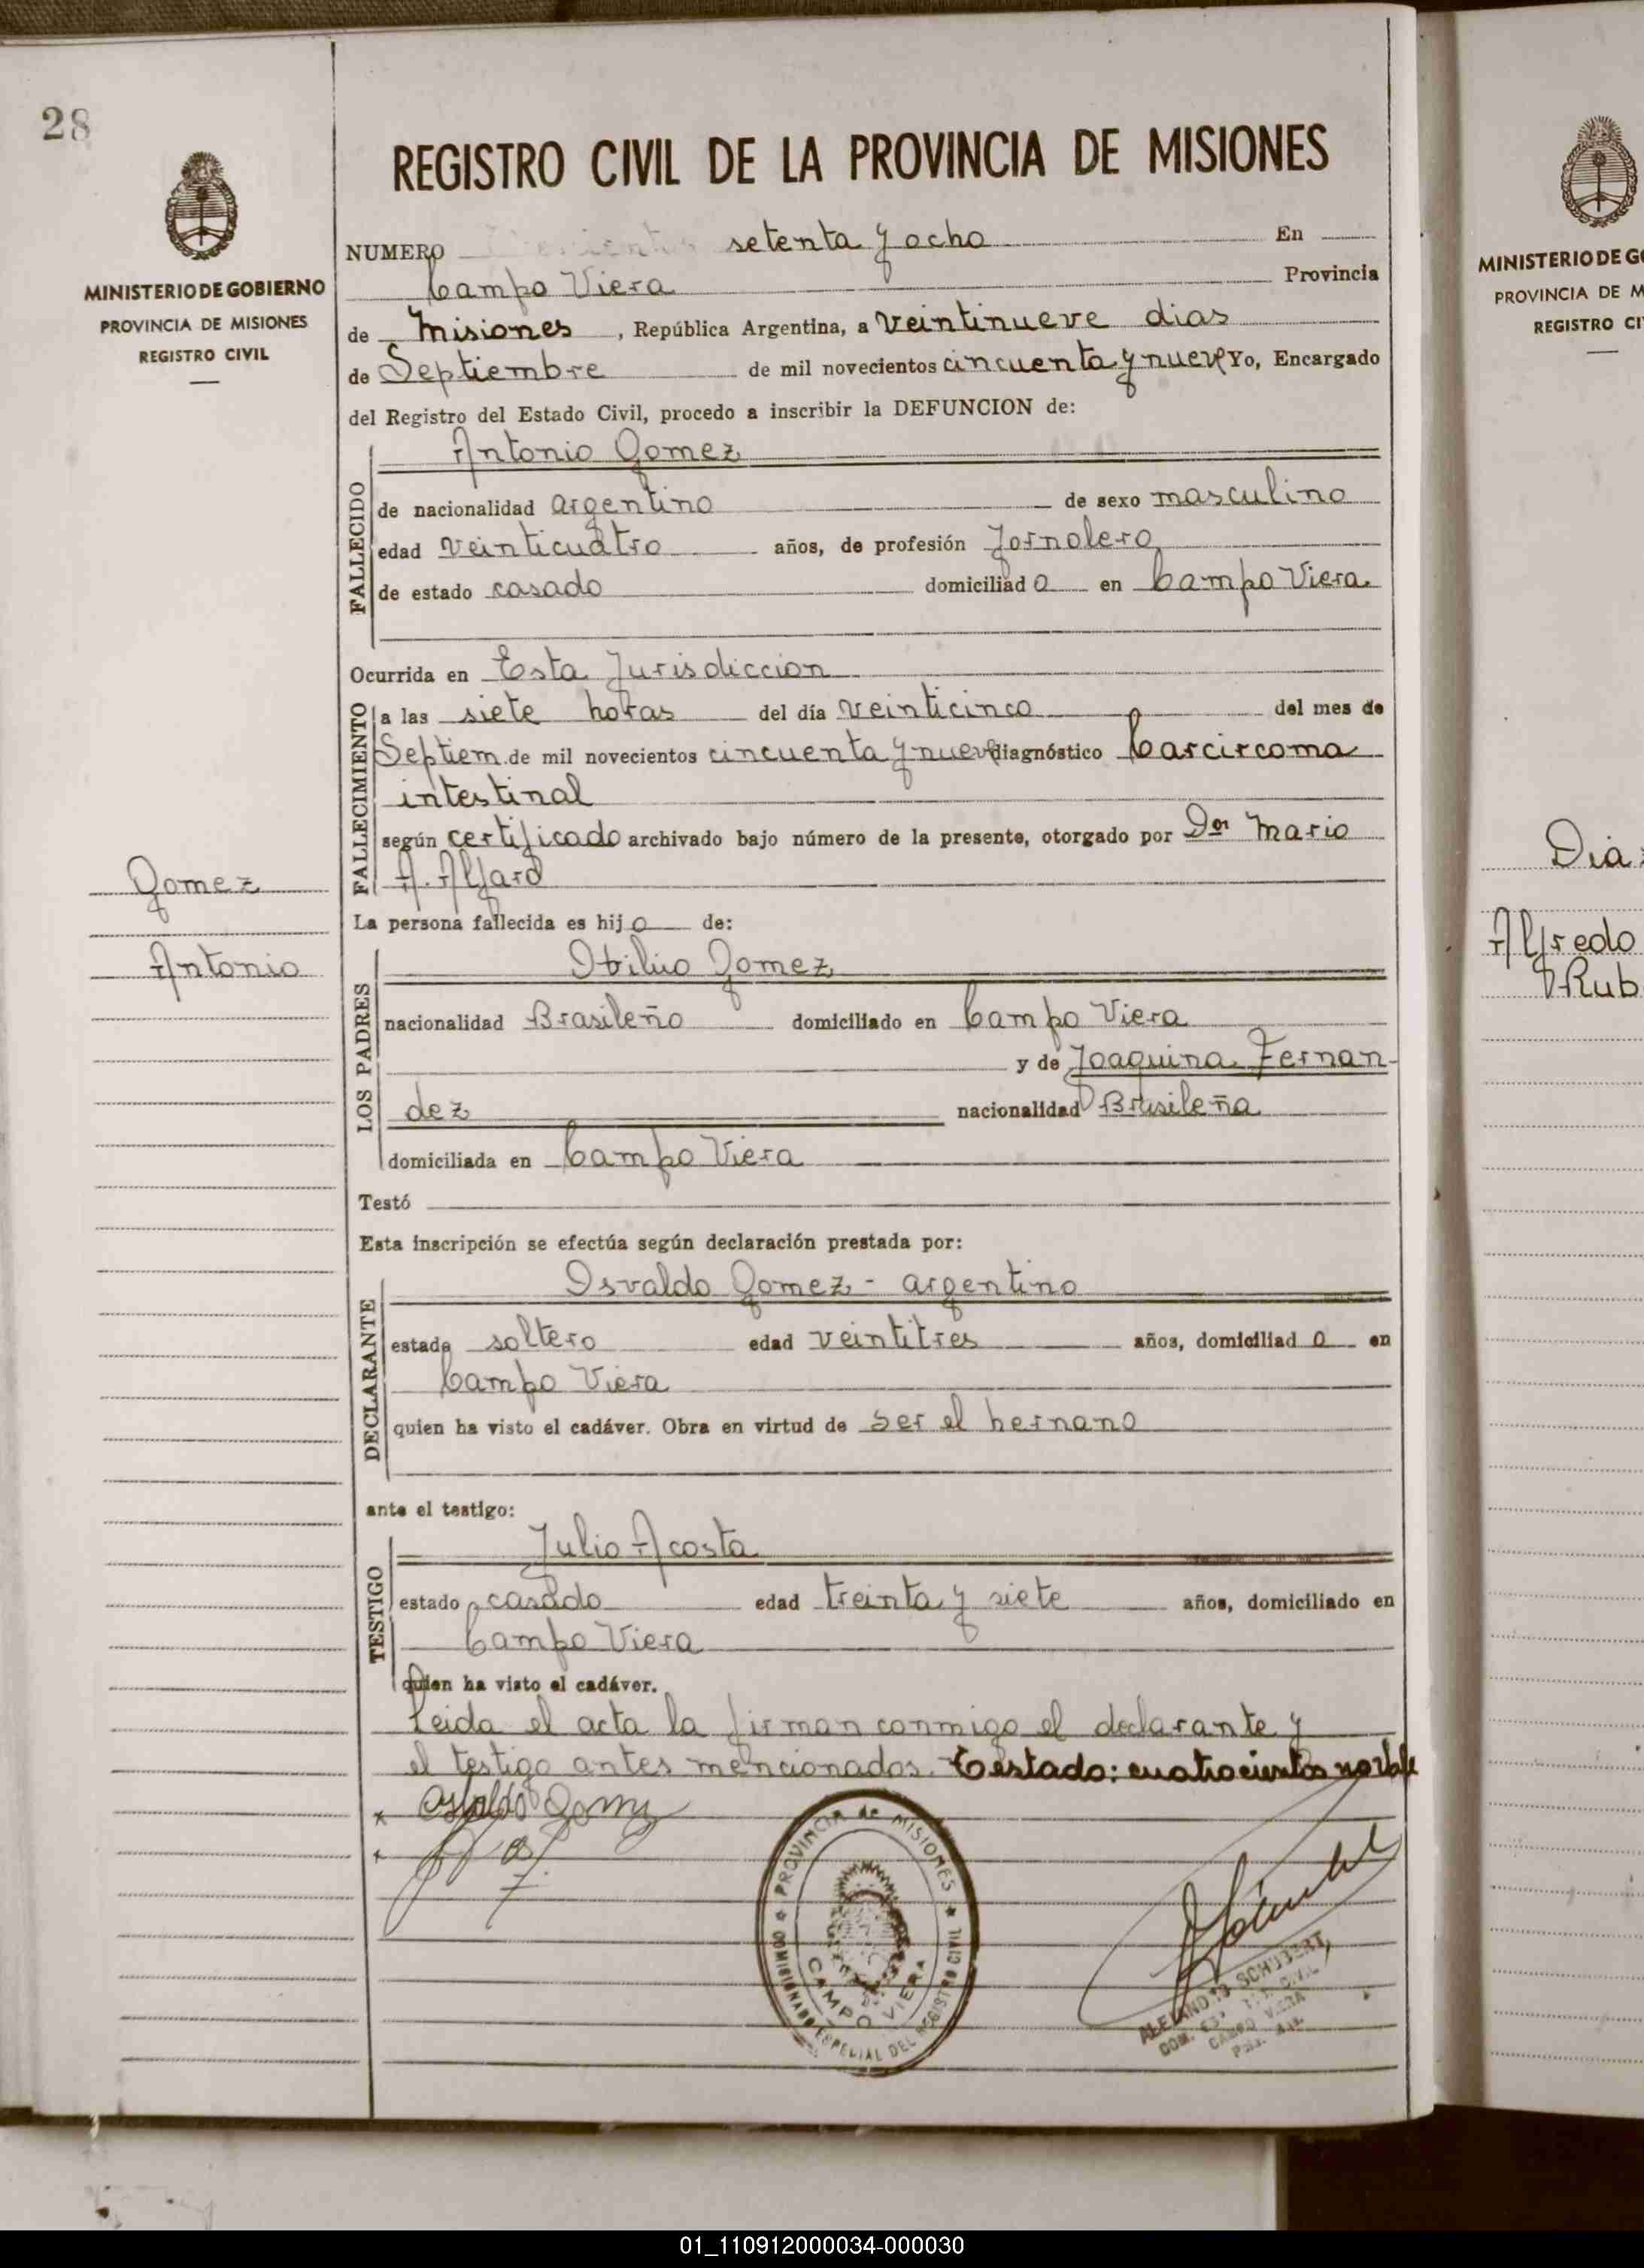 28
REGISTRO CIVIL DE LA PROVINCIA DE MISIONES
MINISTERIO DE GOBIERNO
PROVINCIA DE MISIONES
REGISTRO CIVIL
NUMERO setenta y ocho En
Campo Viera Provincia
de Misiones, República Argentina, a veintinueve dias
de Septiembre de mil novecientos cincuenta y nueve Yo, Encargado
del Registro del Estado Civil, procedo a inscribir la DEFUNCION de:
FALLECIDO
Antonio Gomez
de nacionalidad argentino de sexo masculino
edad veinticuatro años, de profesión Jornolero
de estado casado domiciliado en Campo Viera
Ocurrida en Esta Jurisdiccion
FALLECIMIENTO
a las siete horas del día veinticinco del mes de
Septiem. de mil novecientos cincuenta y nueve diagnóstico Carcircoma
intestinal
según certificado archivado bajo número de la presente, otorgado por Dor Mario
A. Alfard
Gomez
Antonio
La persona fallecida es hijo de:
LOS PADRES
Gomez
nacionalidad Brasileño domiciliado en Campo Viera
y de Joaquina Fernan-
dez nacionalidad Brasileña
domiciliada en Campo Viera
Testó
Esta inscripción se efectúa según declaración prestada por:
DECLARANTE
Osvaldo Gomez - argentino
estado soltero edad veintitres años, domiciliado en
Campo Viera
quien ha visto el cadáver. Obra en virtud de ser el hernano
ante el testigo:
TESTIGO
Julio Acosta
estado casado edad treinta y siete años, domiciliado en
Campo Viera
quien ha visto el cadáver.
Leida el acta la firman conmigo el declarante y
el testigo antes mencionados. Testado: cuatrocientos no vale
Osvaldo Gomez
PROVINCIA de MISIONES
COMISIONADO ESPECIAL DEL REGISTRO CIVIL
CAMPO VIERA
ALEJANDRO SCHUBERT
CAMPO VIERA
MINISTERIO DE G
PROVINCIA DE M
REGISTRO CI
Dia
Alfredo
Rub
01_110912000034-000030